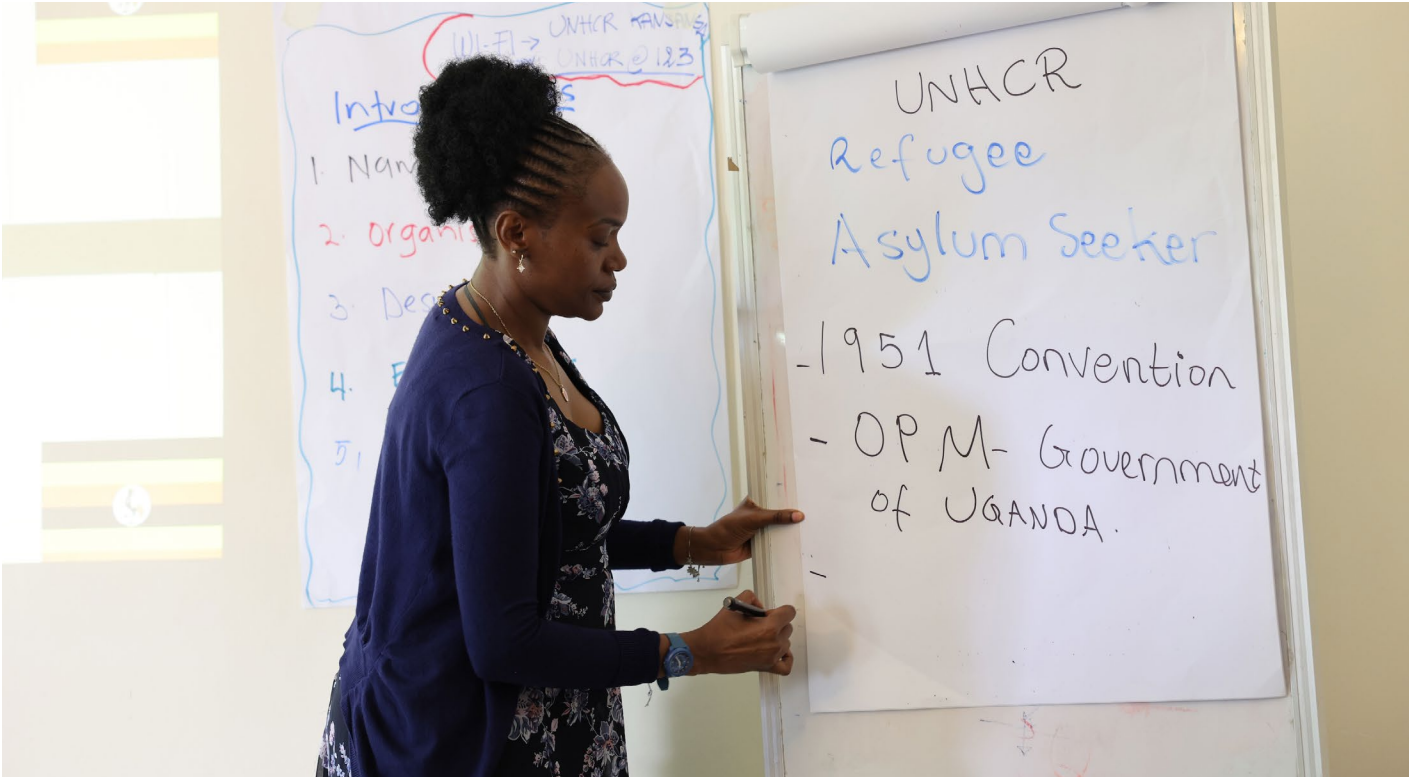 WI-FI → UNHCR KANSANS
UNHCR @ 123
1. Nam
2. Organis
3. Des
4.
5,
UNHCR
Refugee
Asylum Seeker
-1951 Convention
- OPM- Government
of UGANDA.
-